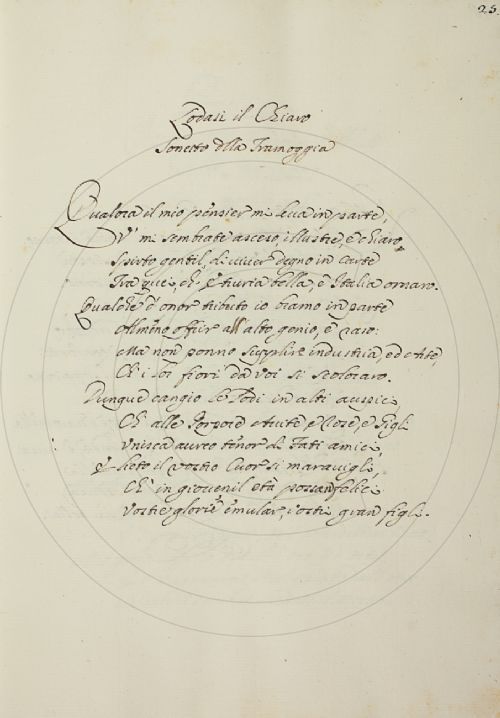 25.
Lodasi il Chiaro
Sonetto della Tramoggia
Qualora il mio pensier mi leva in parte,
V' mi sembrate asceso, illustre, e chiaro,
Spirto gentil, di viver degno in carte
Tra quei, ch' Etruria bella, e Italia ornaro.
Qualche d'onor tributo io bramo in parte
Almeno offrir all'alto genio, e raro:
Ma non ponno supplire industria, ed Arte,
Ch'i lor fiori da voi si scoloraro.
Dunque cangio le Lodi in alti auspici
Ch' alle Porpore avite, e Rose, e Gigli
Unisca aureo tenor di Fati amici,
E lieto il vostro Cuor si maravigli,
Ch' in giovenil età possan felici
Vostre glorie emular, i vostri gran figli.